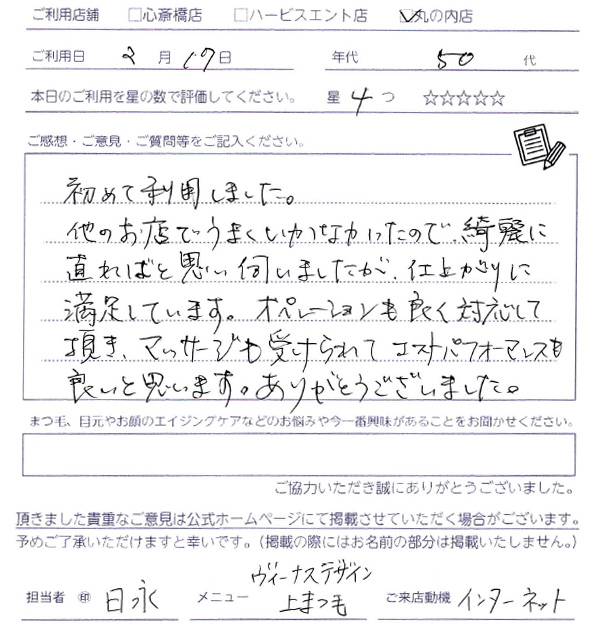 ご利用店舗 □心斎橋店 □ハービスエント店 ☑丸の内店
ご利用日 2 月 17 日 年代 50 代
本日のご利用を星の数で評価してください。 星 4 つ ☆☆☆☆☆
ご感想・ご意見・ご質問等をご記入ください。
初めて利用しました。
他のお店でうまくいかなかったので、綺麗に
直ればと思い伺いましたが、仕上がりに
満足しています。オペレーションも良く対応して
頂き、マッサージも受けられてコストパフォーマンスも
良いと思います。ありがとうございました。
まつ毛、目元やお顔のエイジングケアなどのお悩みや今一番興味があることをお聞かせください。
ご協力いただき誠にありがとうございました。
頂きました貴重なご意見は公式ホームページにて掲載させていただく場合がございます。
予めご了承いただけますと幸いです。（掲載の際にはお名前の部分は掲載いたしません。）
ヴィーナスデザイン
担当者 ㊞ 日永 メニュー 上まつ毛 ご来店動機 インターネット